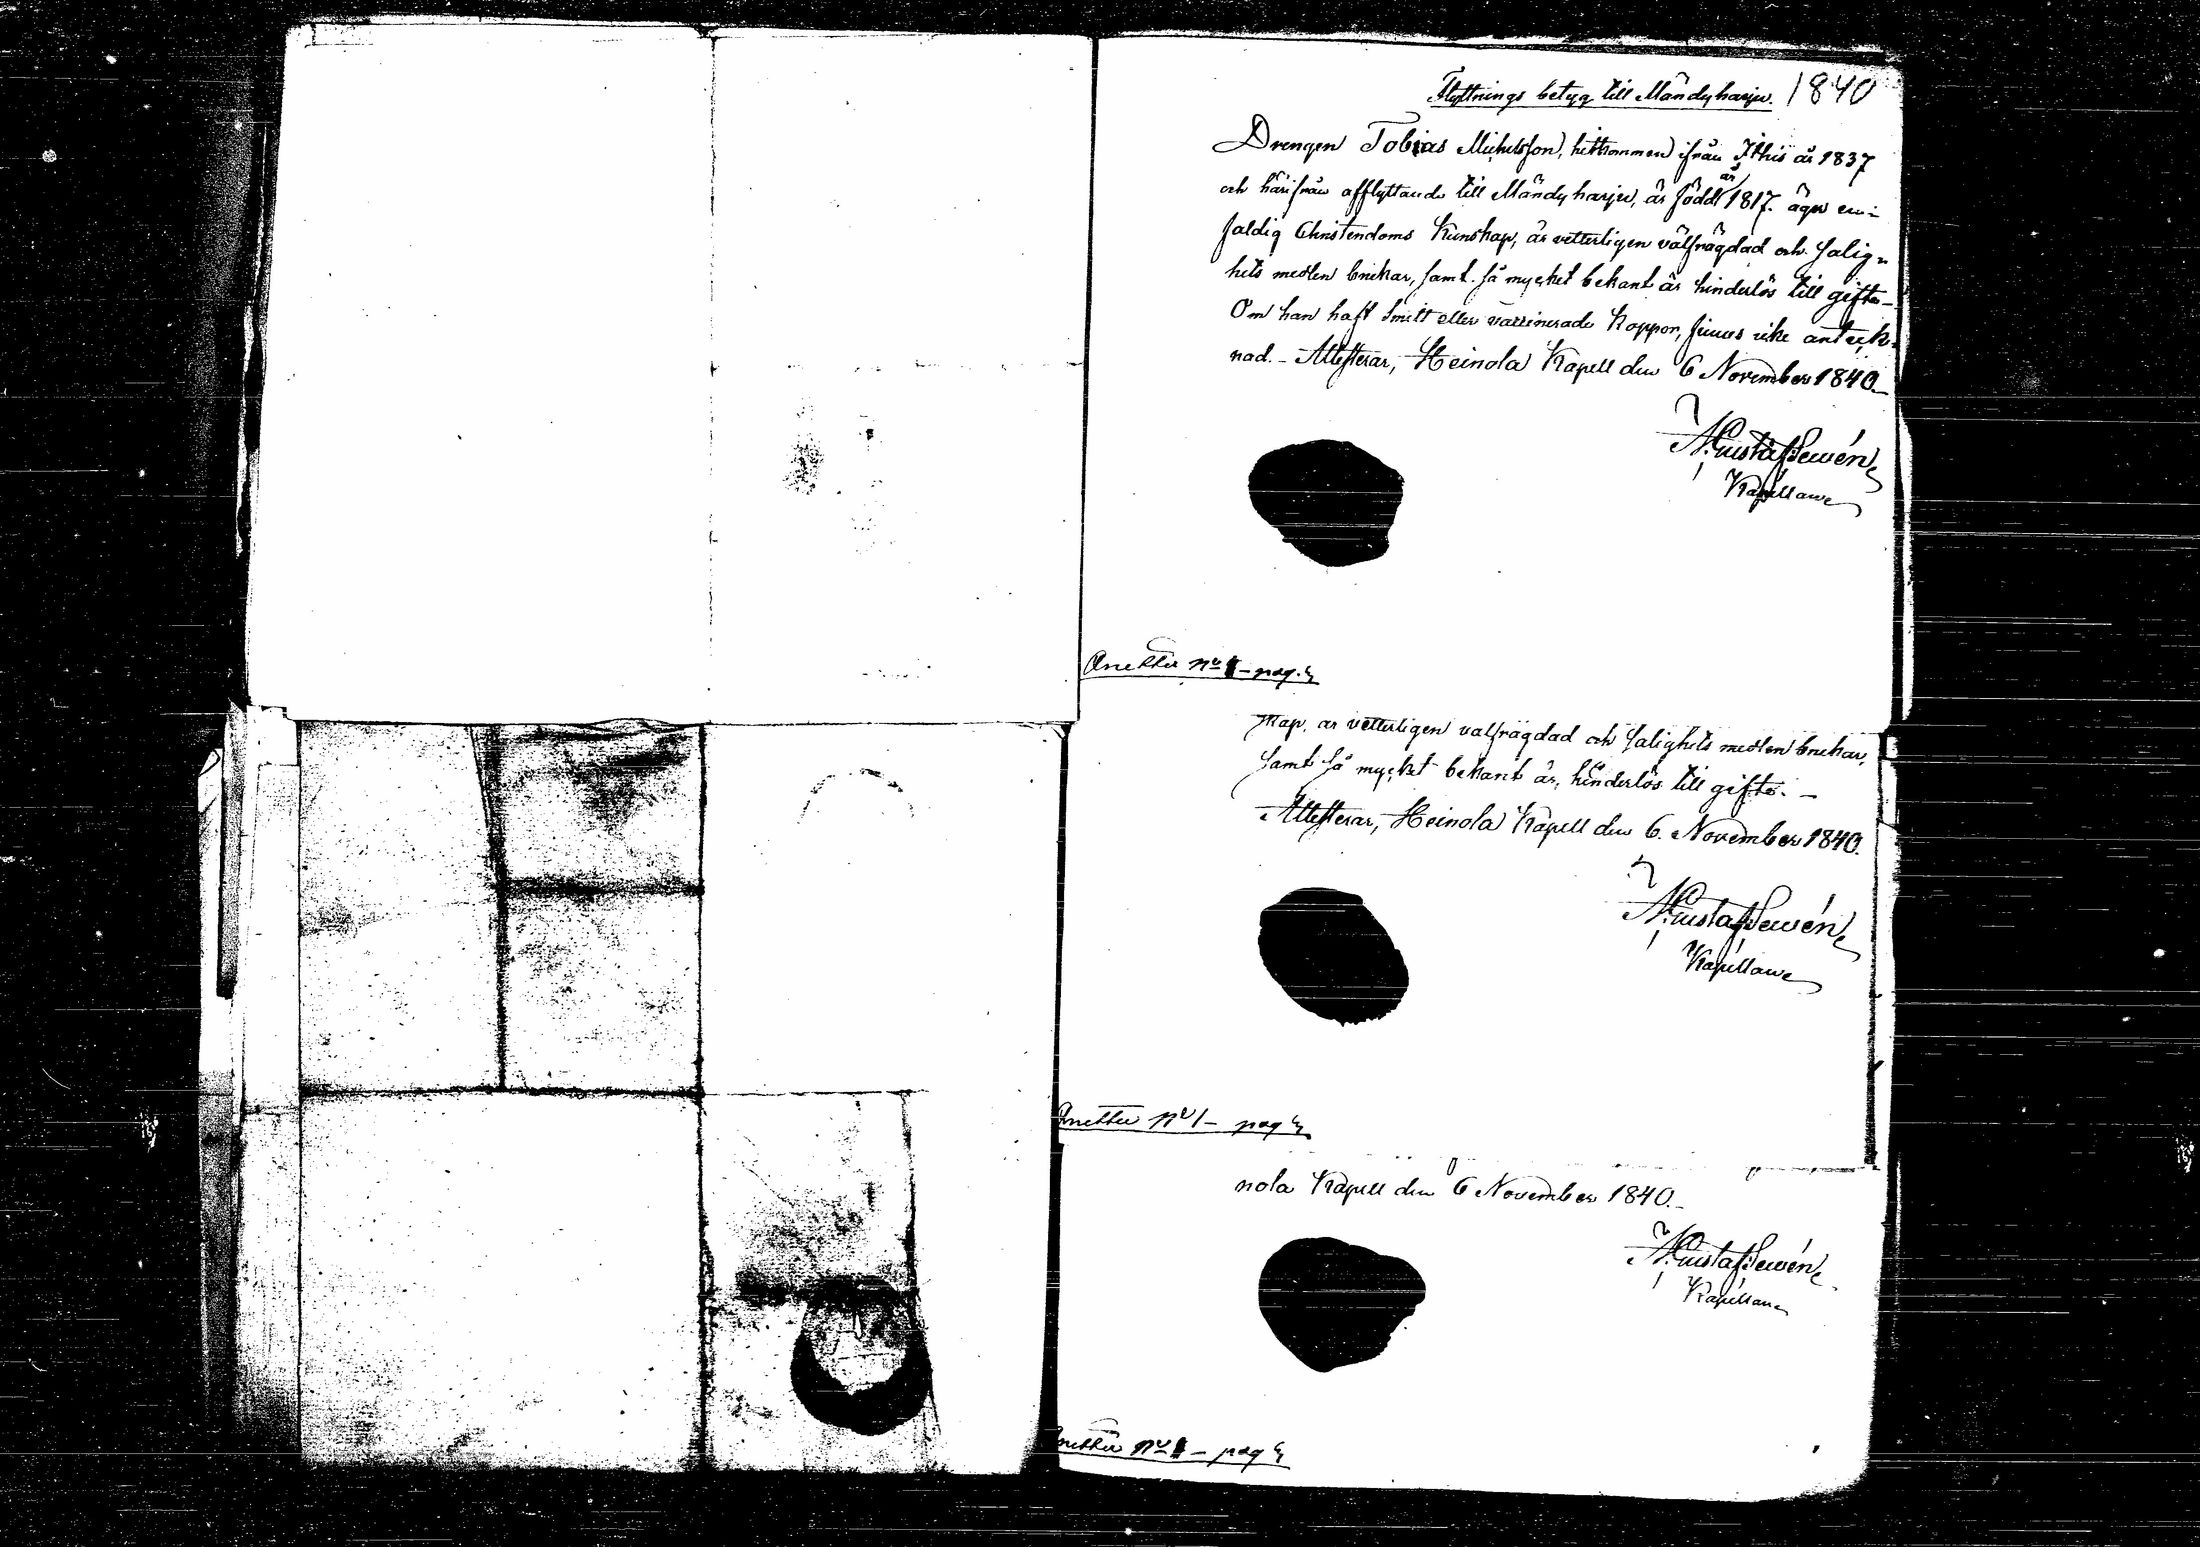 Flyttnings betyg till Mändyharju. 1840
Drengen Tobias Michelsson, hitkommen ifrån Ithis år 1837
och härifrån afflyttande till Mändyharju, är född år 1817. äger en-
faldig Christendoms Kunskap, är vetterligen välfrägdad och salig-
hets medlen brukar, samt så mycket bekant är hinderlös till gifte.-
Om han haft Smitt eller vaccinerade Koppor, finnes icke anteck-
nad. - Attesterar, Heinola Kapell den 6 November 1840.-
Gustaf
Kapellan
No 1 - pag.
skap, är vetterligen välfrägdad och salighets medlen brukar,
samt så mycket bekant är, hinderlös till gifte. -
Attesterar, Heinola Kapell den 6. November 1840.
Gustaf
Kapellan
No 1 - pag
nola Kapell den 6 November 1840.-
Gustaf
Kapellan
No 1 - pag